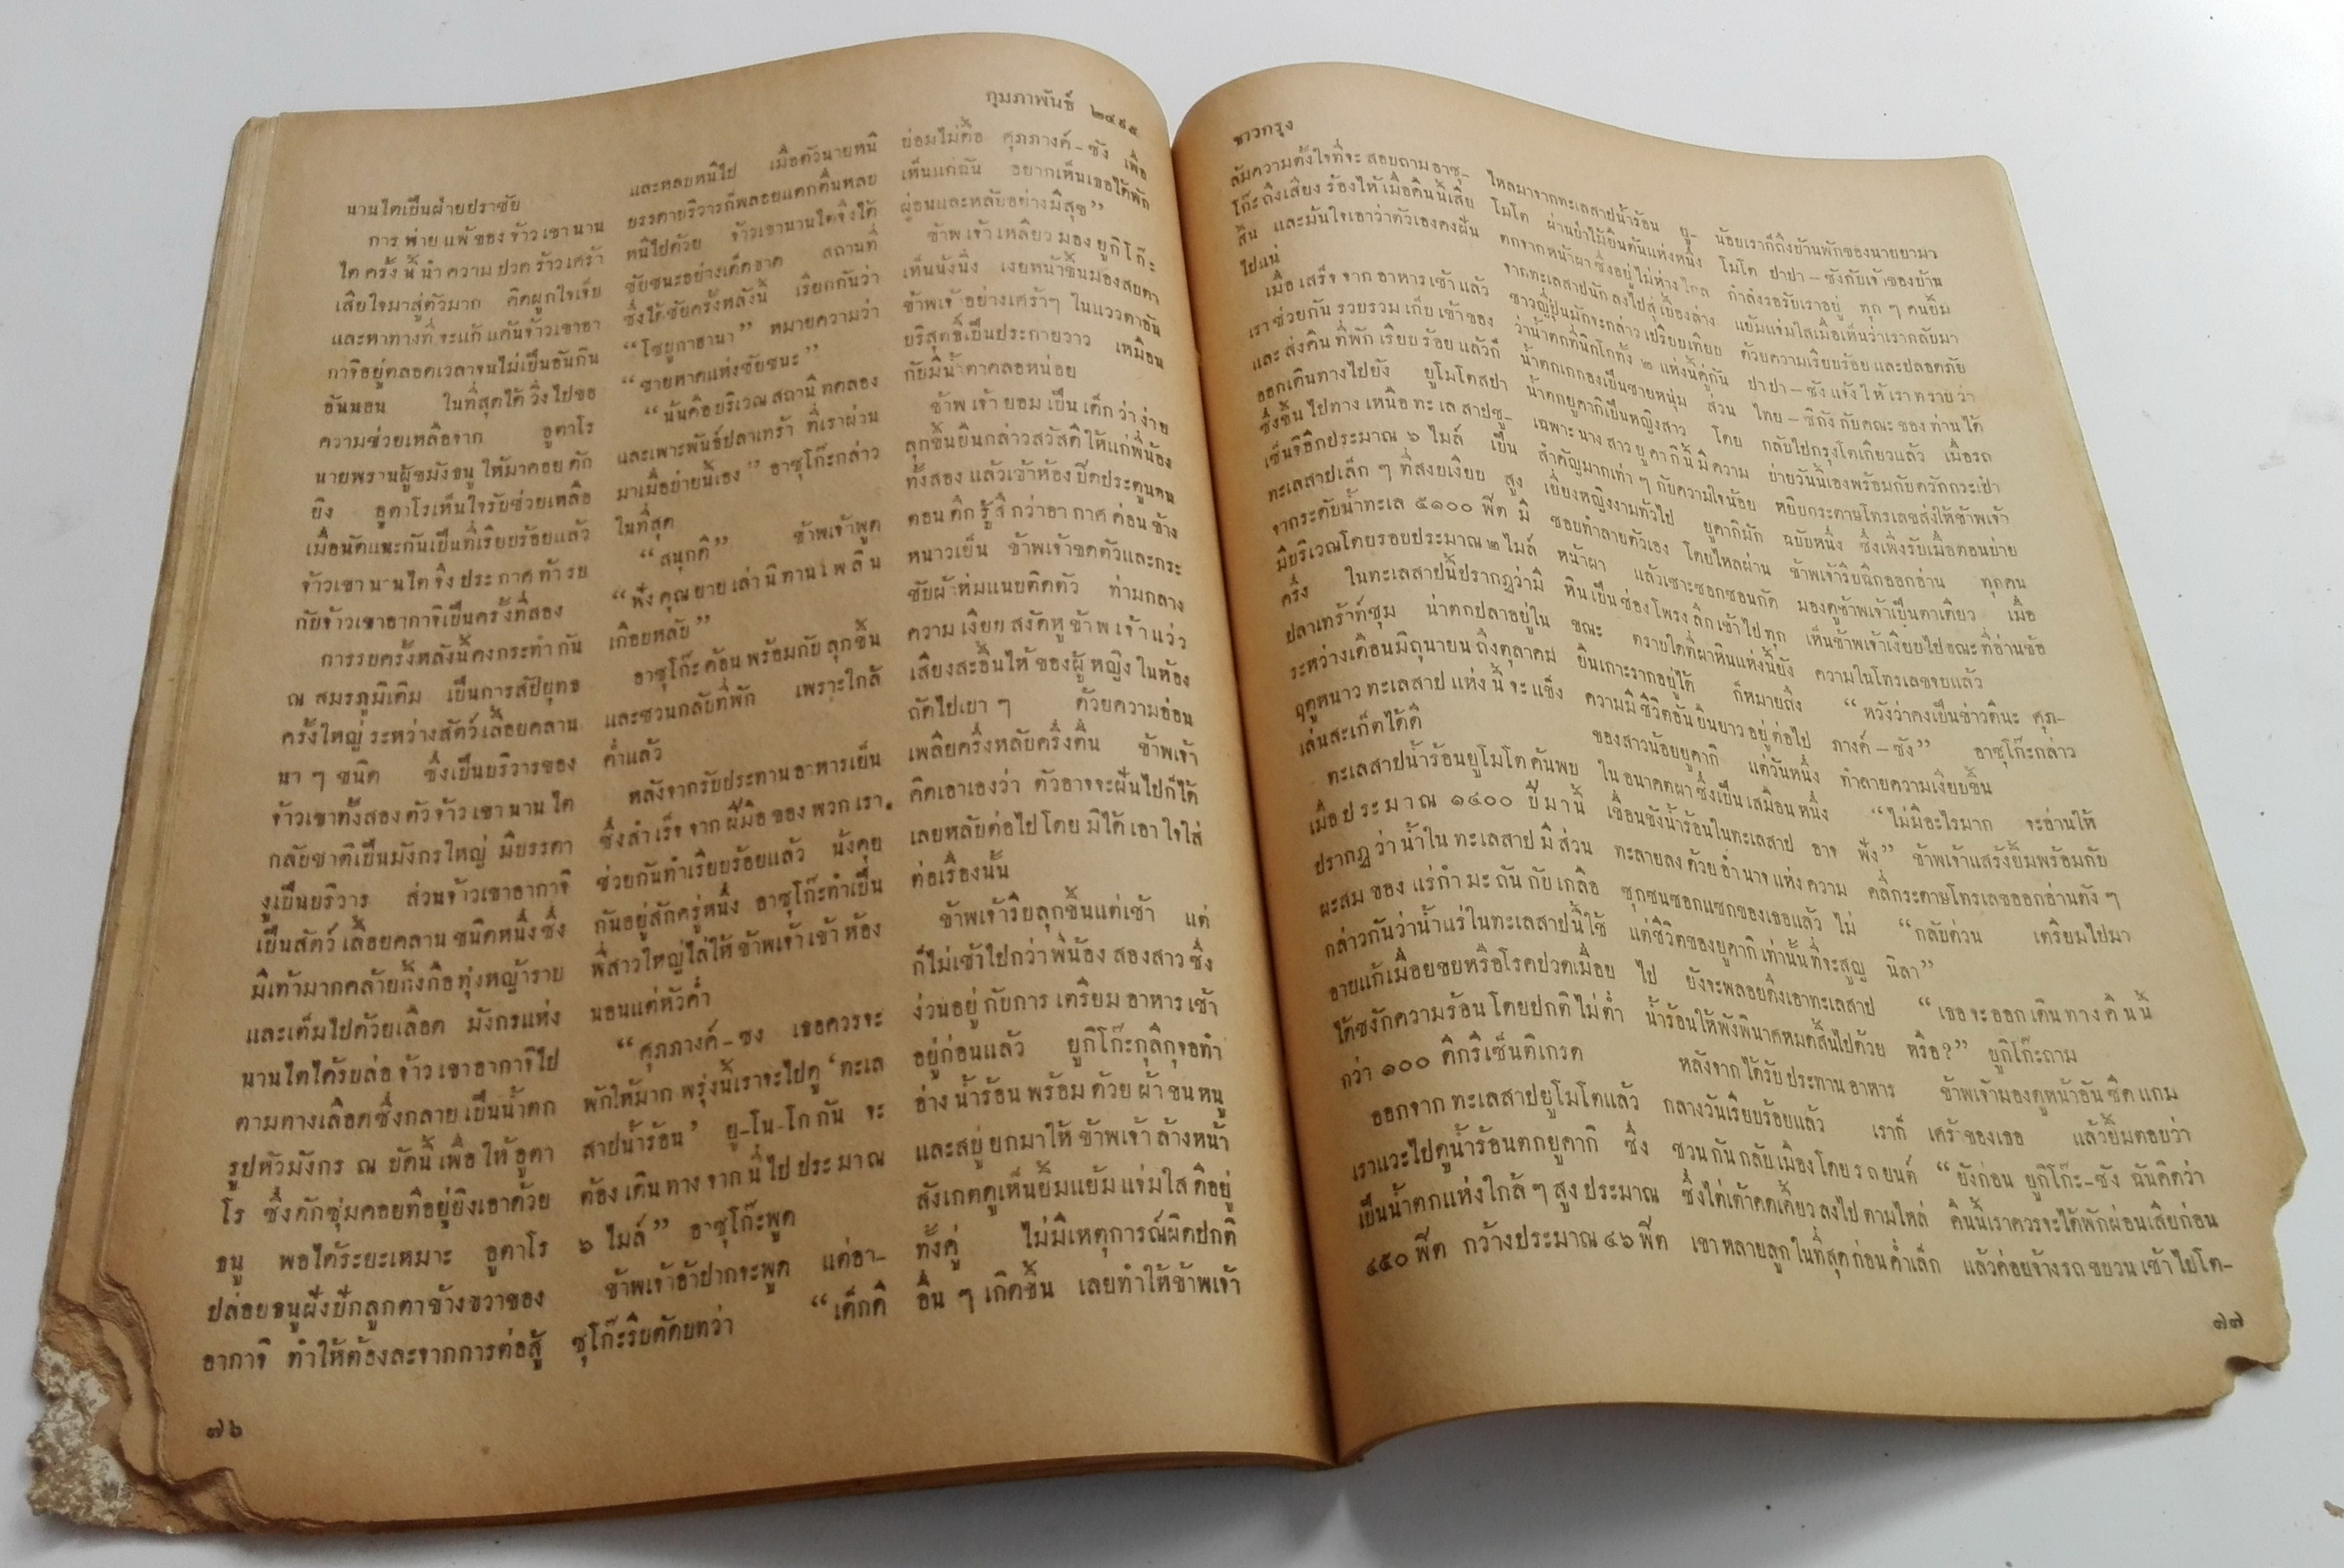 กุมภาพันธ์ ๒๔๙๕
นานไตเป็นฝ่ายปราชัย
การ พ่าย แพ้ ของ จ้าว เขา นาน
ไต ครั้ง นี้ นำ ความ ปวด ร้าว เศร้า
เสียใจมาสู่ตัวมาก คิดผูกใจเจ็บ
และหาทางที่ จะแก้ แค้นจ้าวเขาอา
กาจิอยู่ตลอดเวลาจนไม่เป็นอันกิน
อันนอน ในที่สุดได้ วิ่ง ไปขอ
ความช่วยเหลือจาก อูตาโร
นายพรานผู้ขมังธนู ให้มาคอย ดัก
ยิง อูตาโรเห็นใจรับช่วยเหลือ
เมื่อนัดแนะกันเป็นที่เรียบร้อยแล้ว
จ้าวเขา นานไต จึง ประ กาศ ท้า รบ
กับจ้าวเขาอากาจิเป็นครั้งที่สอง
การรบครั้งหลังนี้คงกระทำ กัน
ณ สมรภูมิเดิม เป็นการสัปยุทธ
ครั้งใหญ่ ระหว่างสัตว์ เลื้อยคลาน
นา ๆ ชนิด ซึ่งเป็นบริวารของ
จ้าวเขาทั้งสอง ตัวจ้าว เขา นาน ไต
กลับชาติเป็นมังกรใหญ่ มีบรรดา
งูเป็นบริวาร ส่วนจ้าวเขาอากาจิ
เป็นสัตว์ เลื้อยคลาน ชนิดหนึ่ง ซึ่ง
มีเท้ามากคล้ายกิ้งกือ ทุ่งหญ้าราบ
และเต็มไปด้วยเลือด มังกรแห่ง
นานไตได้รับล่อ จ้าว เขาอากาจิไป
ตามทางเลือดซึ่งกลาย เป็นน้ำตก
รูปหัวมังกร ณ บัดนี้ เพื่อ ให้ อูตา
โร ซึ่งดักซุ่มคอยทีอยู่ยิงเอาด้วย
ธนู พอได้ระยะเหมาะ อูตาโร
ปล่อยธนูฝังปักลูกตาข้างขวาของ
อากาจิ ทำให้ต้องละจากการต่อสู้
และหลบหนีไป เมื่อตัวนายหนี
บรรดาบริวารก็พลอยแตกตื่นหลบ
หนีไปด้วย จ้าวเขานานไตจึงได้
ชัยชนะอย่างเด็ดขาด สถานที่
ซึ่งได้ชัยครั้งหลังนี้ เรียกกันว่า
“โชบูกาฮามา” หมายความว่า
“ชายหาดแห่งชัยชนะ”
“นั่นคือบริเวณ สถานี ทดลอง
และเพาะพันธ์ปลาเทร้า ที่เราผ่าน
มาเมื่อบ่ายนี้เอง” อาซุโก๊ะกล่าว
ในที่สุด
“สนุกดี” ข้าพเจ้าพูด
“ฟัง คุณ ยาย เล่า นิ ทาน เ พ ลิ น
เกือบหลับ”
อาซุโก๊ะ ค้อน พร้อมกับ ลุกขึ้น
และชวนกลับที่พัก เพราะใกล้
ค่ำแล้ว
หลังจากรับประทาน อาหารเย็น
ซึ่งสำเร็จ จาก ฝีมือ ของ พวก เรา
ช่วยกันทำเรียบร้อยแล้ว นั่งคุย
กันอยู่สักครู่หนึ่ง อาซุโก๊ะทำเป็น
พี่สาวใหญ่ไล่ให้ ข้าพเจ้า เข้า ห้อง
นอนแต่หัวค่ำ
“ศุภภางค์-ซัง เธอควรจะ
พักให้มาก พรุ่งนี้เราจะไปดู ‘ทะเล
สาปน้ำร้อน’ ยู-โน-โก กัน จะ
ต้อง เดิน ทาง จาก นี่ ไป ประ มาณ
๖ ไมล์” อาซุโก๊ะพูด
ข้าพเจ้าอ้าปากจะพูด แต่อา-
ซุโก๊ะรีบตัดบทว่า “เด็กดี
ย่อมไม่ดื้อ ศุภภางค์-ซัง เพื่อ
เห็นแก่ฉัน อยากเห็นเธอได้พัก
ผ่อนและหลับอย่างมีสุข”
ข้าพ เจ้า เหลียว มอง ยูกิโก๊ะ
เห็นนั่งนิ่ง เงยหน้าขึ้นมองสบตา
ข้าพเจ้ อย่างเศร้าๆ ในแววตาอัน
บริสุทธิ์เป็นประกายวาว เหมือน
กับมีน้ำตาคลอหน่อย
ข้าพ เจ้า ยอม เป็น เด็ก ว่า ง่าย
ลุกขึ้นยืนกล่าวสวัสดีให้แก่พี่น้อง
ทั้งสอง แล้วเข้าห้อง ปิดประตูนอน
ตอน ดึก รู้ สึ กว่าอา กาศ ค่อน ข้าง
หนาวเย็น ข้าพเจ้าขดตัวและกระ
ชับผ้าห่มแนบติดตัว ท่ามกลาง
ความ เงียบ สงัดหู ข้า พ เจ้า แว่ว
เสียงสะอื้นไห้ ของผู้ หญิง ในห้อง
ถัดไปเบา ๆ ด้วยความอ่อน
เพลียครึ่งหลับครึ่งตื่น ข้าพเจ้า
คิดเอาเองว่า ตัวอาจจะฝันไปก็ได้
เลยหลับต่อไป โดย มิได้ เอา ใจใส่
ต่อเรื่องนั้น
ข้าพเจ้ารีบลุกขึ้นแต่เช้า แต่
ก็ไม่เช้าไปกว่า พี่น้อง สองสาว ซึ่ง
ง่วนอยู่ กับการ เตรียม อาหาร เช้า
อยู่ก่อนแล้ว ยูกิโก๊ะกุลีกุจอทำ
อ่าง น้ำร้อน พร้อม ด้วย ผ้า ขน หนู
และสบู่ ยกมาให้ ข้าพเจ้า ล้างหน้า
สังเกตดูเห็นยิ้มแย้ม แจ่มใส ดีอยู่
ทั้งคู่ ไม่มีเหตุการณ์ผิดปกติ
อื่น ๆ เกิดขึ้น เลยทำให้ข้าพเจ้า
๗๖
ชาวกรุง
ล้มความตั้งใจที่จะ สอบถาม อาซุ-
โก๊ะ ถึงเสียง ร้องไห้ เมื่อคืนนี้เสีย
สิ้น และมั่นใจเอาว่าตัวเองคงฝัน
ไปแน่
เมื่อ เสร็จ จาก อาหาร เช้า แล้ว
เรา ช่วยกัน รวบรวม เก็บ เข้าของ
และ ส่งคืน ที่พัก เรียบ ร้อย แล้วก็
ออกเดินทางไปยัง ยูโมโตสปา
ซึ่งขึ้น ไปทาง เหนือ ทะ เล สาปชู-
เซ็นจิอีกประมาณ ๖ ไมล์ เป็น
ทะเลสาปเล็ก ๆ ที่สงบเงียบ สูง
จากระดับน้ำทะเล ๕๑๐๐ ฟีต มี
มีบริเวณโดยรอบประมาณ ๒ ไมล์
ครึ่ง ในทะเลสาปนี้ปรากฏว่ามี
ปลาเทร้าท์ชุม น่าตกปลาอยู่ใน
ระหว่างเดือนมิถุนายน ถึงตุลาคม
ฤดูหนาว ทะเลสาป แห่ง นี้ จะ แข็ง
เล่นสะเก็ตได้ดี
ทะเลสาปน้ำร้อนยูโมโต ค้นพบ
เมื่อ ป ร ะ ม า ณ ๑๔๐๐ ปี มา นี้
ปรากฏ ว่า น้ำใน ทะเลสาป มี ส่วน
ผะสม ของ แร่กำ มะ ถัน กับ เกลือ
กล่าวกันว่าน้ำแร่ในทะเลสาปนี้ใช้
อาบแก้เมื่อยขบหรือโรคปวดเมื่อย
ได้ชงักความร้อน โดยปกติ ไม่ต่ำ
กว่า ๑๐๐ ดิกรีเซ็นติเกรด
ออกจาก ทะเลสาปยูโมโตแล้ว
เราแวะไปดูน้ำร้อนตกยูดากิ ซึ่ง
เป็นน้ำตกแห่งใกล้ ๆ สูง ประมาณ
๔๕๐ ฟีต กว้างประมาณ ๔๖ ฟีต
ไหลมาจากทะเลสาปน้ำร้อน ยู-
โมโต ผ่านป่าไม้ยืนต้นแห่งหนึ่ง
ตกจากหน้าผา ซึ่งอยู่ ไม่ห่าง ไกล
จากทะเลสาปนัก ลงไปสู่ เบื้องล่าง
ชาวญี่ปุ่นมักจะกล่าว เปรียบเทียบ
ว่าน้ำตกที่นิกโกทั้ง ๒ แห่งนี้คู่กัน
น้ำตกเกกองเป็นชายหนุ่ม ส่วน
น้ำตกยูดากิเป็นหญิงสาว โดย
เฉพาะ นาง สาว ยู ดา กิ นี้ มี ความ
สำคัญมากเท่า ๆ กับความใจน้อย
เยี่ยงหญิงงามทั่วไป ยูดากิมัก
ชอบทำลายตัวเอง โดยไหลผ่าน
หน้าผา แล้วเซาะซอกซอนกัด
หิน เป็น ช่อง โพรง ลึก เข้า ไป ทุก
ขณะ ตราบใดที่ผาหินแห่งนี้ยัง
ยืนเกาะรากอยู่ได้ ก็หมายถึง
ความมี ชีวิตอันยืนยาว อยู่ ต่อไป
ของสาวน้อยยูดากิ แต่วันหนึ่ง
ใน อนาคตผา ซึ่งเป็น เสมือน หนึ่ง
เขื่อนขังน้ำร้อนในทะเลสาป อาจ
ทะลายลง ด้วย อำ นาจ แห่ง ความ
ซุกซนซอกแซกของเธอแล้ว ไม่
แต่ชีวิตของยูดากิ เท่านั้น ที่จะสูญ
ไป ยังจะพลอยดึงเอาทะเลสาป
น้ำร้อนให้พังพินาศหมดสิ้นไปด้วย
หลังจาก ได้รับ ประทาน อาหาร
กลางวันเรียบร้อยแล้ว เราก็
ชวน กัน กลับ เมือง โดย ร ถ ยนต์
ซึ่งไต่เต้าคดเคี้ยว ลงไป ตามไหล่
เขา หลายลูก ในที่สุด ก่อน ค่ำเล็ก
น้อยเราก็ถึงบ้านพักของนายยามา
โมโต ปาปา-ซังกับเจ้าของบ้าน
กำลังรอรับเราอยู่ ทุก ๆ คนยิ้ม
แย้มแจ่มใสเมื่อเห็นว่าเรากลับมา
ด้วยความเรียบร้อย และปลอดภัย
ปาปา-ซัง แจ้ง ให้ เรา ทราบ ว่า
ไทย-ชิกัง กับคณะ ของ ท่าน ได้
กลับไปกรุงโตเกียวแล้ว เมื่อรถ
บ่ายวันนี้เองพร้อมกับควักกระเป๋า
หยิบกระดาษโทรเลขส่งให้ข้าพเจ้า
ฉบับหนึ่ง ซึ่งเพิ่งรับเมื่อตอนบ่าย
ข้าพเจ้ารีบฉีกออกอ่าน ทุกคน
มองดูข้าพเจ้าเป็นตาเดียว เมื่อ
เห็นข้าพเจ้าเงียบไปขณะ ที่อ่านข้อ
ความในโทรเลขจบแล้ว
“หวังว่าคงเป็นข่าวดีนะ ศุภ-
ภางค์-ซัง” อาซุโก๊ะกล่าว
ทำลายความเงียบขึ้น
“ไม่มีอะไรมาก จะอ่านให้
ฟัง” ข้าพเจ้าแสร้งยิ้มพร้อมกับ
คลี่กระดาษโทรเลขออกอ่านดัง ๆ
“กลับด่วน เตรียมไปมา
นิลา”
“เธอ จะ ออก เดิน ทาง คื น นี้
หรือ?” ยูกิโก๊ะถาม
ข้าพเจ้ามองดูหน้าอัน ซีด แกม
เศร้าของเธอ แล้วยิ้มตอบว่า
“ยังก่อน ยูกิโก๊ะ-ซัง ฉันคิดว่า
คืนนี้เราควรจะได้พักผ่อนเสียก่อน
แล้วค่อยจ้างรถ ขบวน เช้า ไปโต-
๗๗